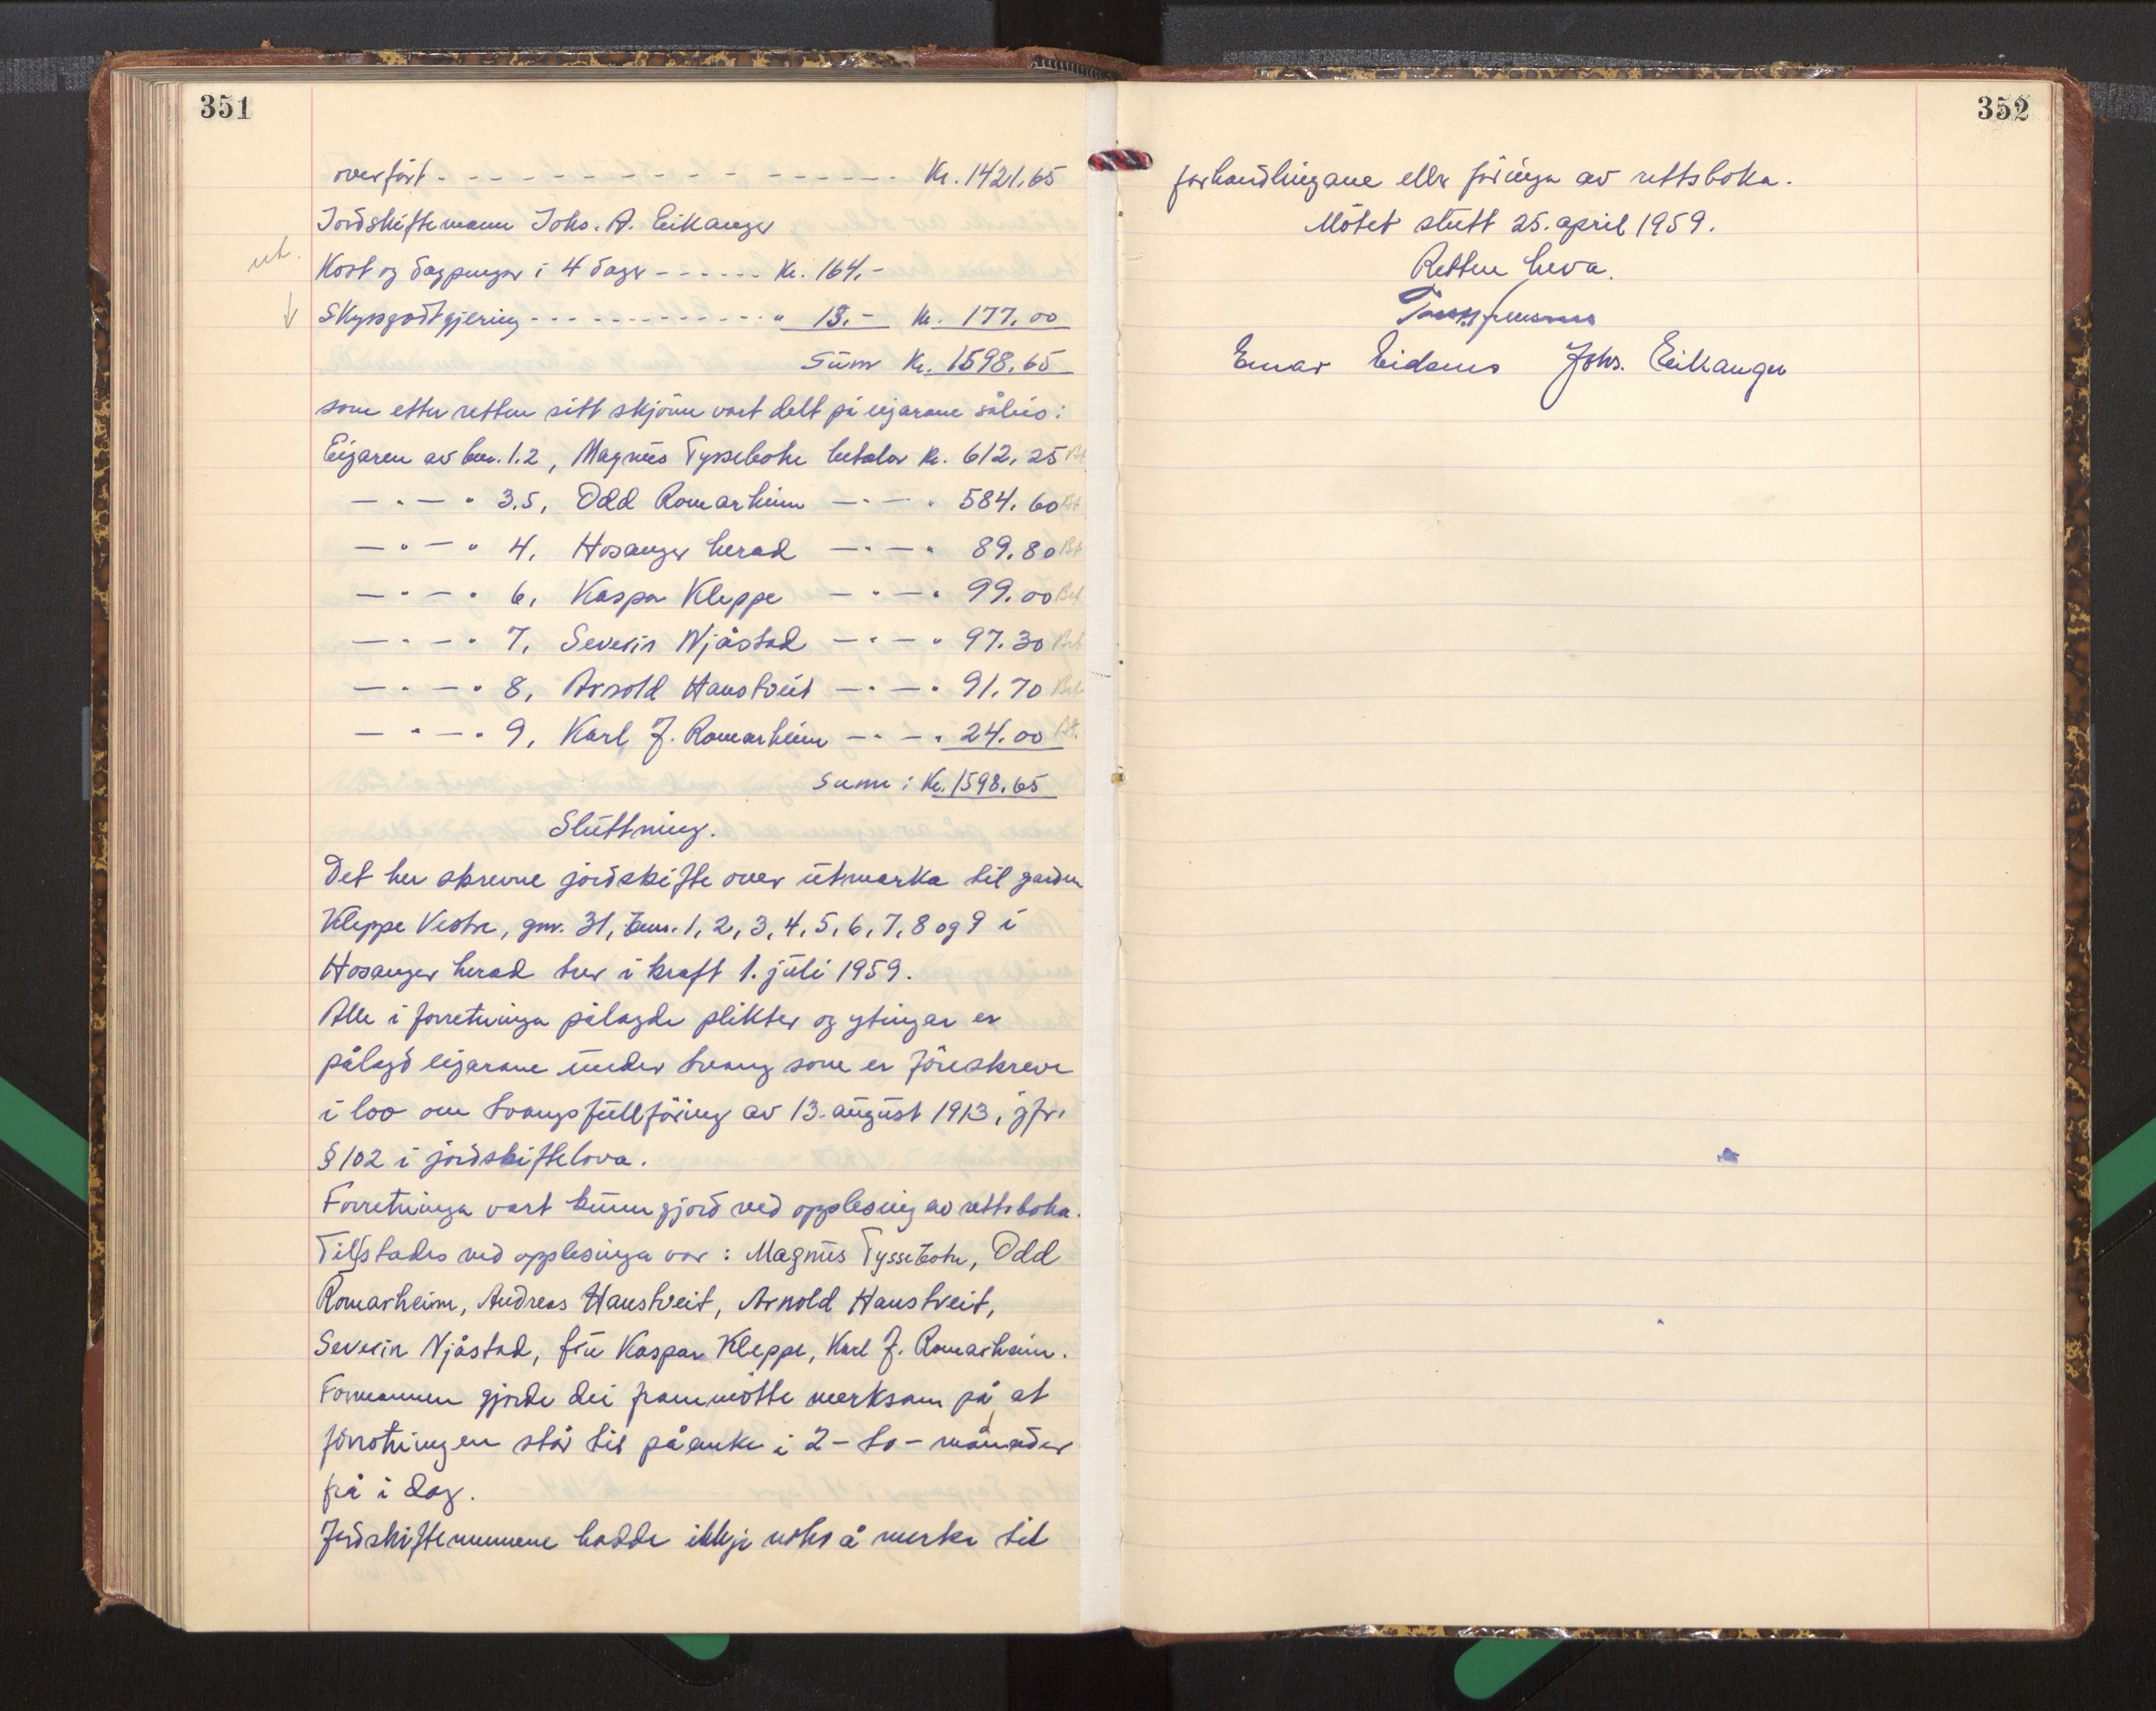 351
overført - - - - - - - - - - - - - - - Kr. 1421,65
Jordskiftemann Johs. A. Eikanger
ut.
Kost og dagpengar i 4 dagar - - - - - - Kr. 164,-
Skyssgodtgjering - - - - - - - - - - - - " 13.- Kr. 177,00
Sum Kr. 1598,65
som etter retten sitt skjønn vart delt på eigarane såleis:
Eigaren av bnr. 1.2, Magnus Tyssebotn betalar Kr. 612,25 Bt
— " — " 3.5, Odd Romarheim — " — " 584.60 Bt
— " — " 4, Hosanger herad — " — " 89.80 Bt
— " — " 6, Kaspar Kleppe — " — " 99.00 Bet
— " — " 7, Severin Njåstad — " — " 97.30 Bet
— " — " 8, Arnold Haustveit — " — " 91.70 Bet
— " — " 9, Karl J. Romarheim — " — " 24.00 Bt.
Sum : Kr. 1598.65
Sluttning.
Det her skrevne jordskifte over utmarka til garden
Kleppe Vestre, gnr. 31, bnr. 1, 2, 3, 4, 5, 6, 7, 8 og 9 i
Hosanger herad trer i kraft 1. juli 1959.
Alle i forretninga pålagde plikter og ytingar er
pålagd eigarane under tvang som er føreskreve
i lov om tvangsfullføring av 13. august 1913, jfr.
§ 102 i jordskiftelova.
Forretninga vart kunngjord ved opplesing av rettsboka.
Tilstades ved opplesinga var : Magnus Tyssebotn, Odd
Romarheim, Andreas Haustveit, Arnold Haustveit,
Severin Njåstad, fru Kaspar Kleppe, Karl J. Romarheim.
Formannen gjorde dei frammøtte merksam på at
forretningen står til påanke i 2 - to - månader
frå i dag.
Jordskiftemennene hadde ikkje noko å merke til
352
forhandlingane eller føringa av rettsboka.
Møtet slutt 25. april 1959.
Retten heva.
Einar Eidsnes Johs. Eikanger